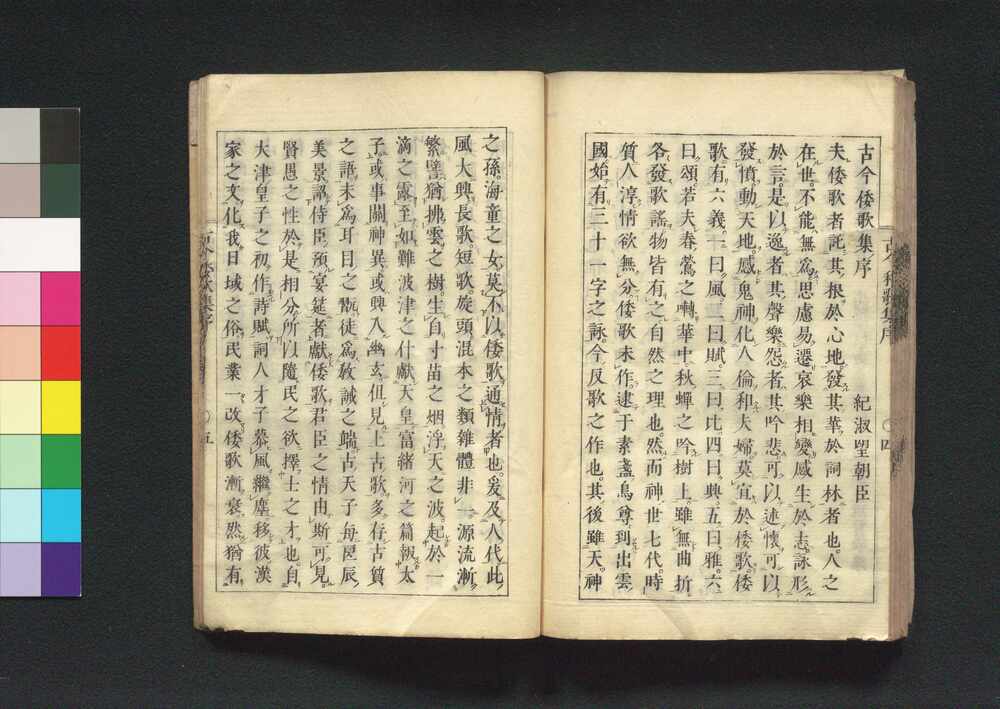 古今倭歌集序
紀淑望朝臣
夫倭歌者託其根於心地發其華於詞林者也。人之
在世。不能無爲思慮易遷哀樂相變感生於志詠形
於言。是以逸者其聲樂怨者其吟悲可以述懷可以
發憤動天地。感鬼神化人倫和夫婦莫宜於倭歌。倭
歌有六義。一曰風二曰賦。三曰比四曰興。五曰雅。六
曰頌若夫春鶯之囀華中秋蟬之吟樹上。雖無曲折
各發歌謠物皆有之自然之理也。然而神世七代。時
質人淳情欲無分倭歌未作。逮于素盞烏尊到出雲
國始有三十一字之詠。今反歌之作也。其後雖天神
之孫海童之女。莫不以倭歌通情者也。爰及人代此
風大興長歌。短歌。旋頭混本之類雜體非一源流漸
繁譬猶拂雲之樹生自寸苗之烟浮天之波。起於一
滴之露至如難波津之什獻天皇富緒河之篇報太
子。或事關神異或興入幽玄但見上古歌多存古質
之語未爲耳目之翫徒爲敎誡之端古天子每良辰
美景詔侍臣預宴筵者獻倭歌君臣之情由斯可見。
賢愚之性於是相分所以隨民之欲擇士之才也。自
大津皇子之初作詩賦詞人才子慕風繼塵移彼漢
家之文化我日域之俗。民業一改倭歌漸衰然猶有
古今和歌集序
〇四
〇五